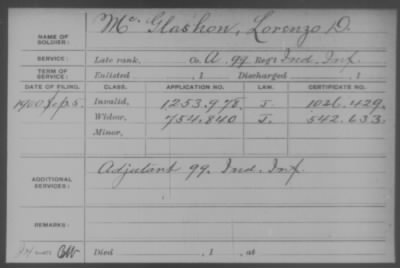 NAME OF SOLDIER: Mc. Glashon, Lorenzo D.
SERVICE: Late rank, Co. A. 99 Reg't Ind. Inf.
TERM OF SERVICE: Enlisted , 1 Discharged , 1
DATE OF FILING. CLASS. APPLICATION NO. LAW. CERTIFICATE NO.
1900 Sep 5. Invalid, 1253.978. J. 1026.429.
Widow, 754.840 J. 542.633
Minor,
ADDITIONAL SERVICES: Adjutant 99. Ind. Inf.
REMARKS:
Died , 1 , at